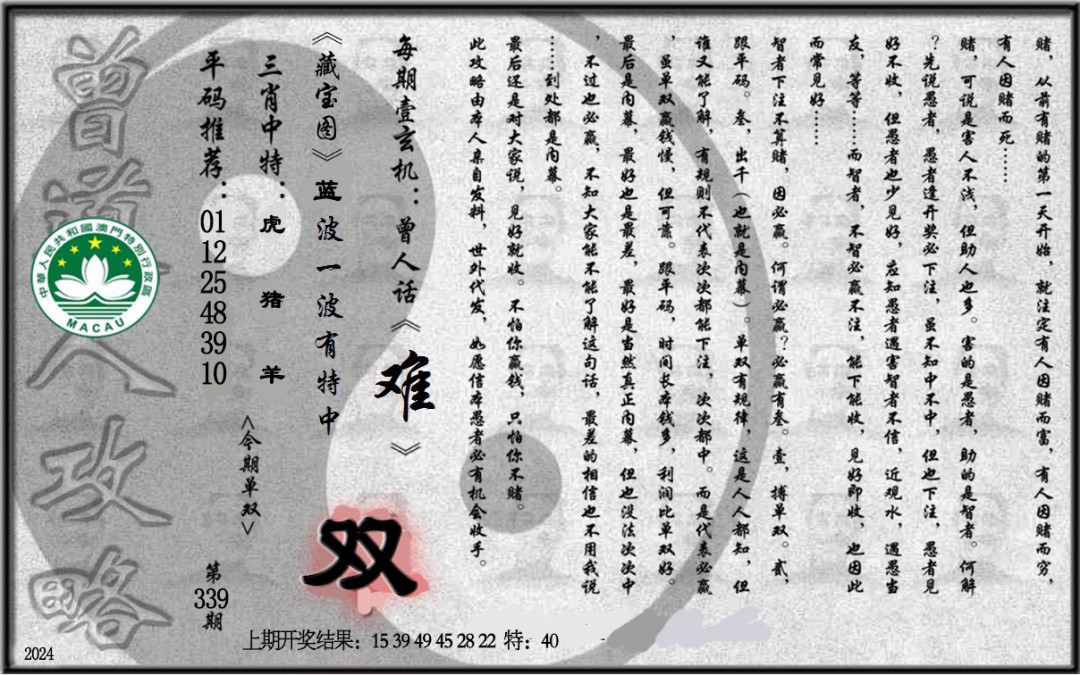 赌，从前有赌的第一天开始，就注定有人因赌而富，有人因赌而穷，
有人因赌而死……
赌，可说是害人不浅，但助人也多。害的是愚者，助的是智者。何解
？先说愚者，愚者逢开奖必下注，虽不知中不中，但也下注，愚者见
好不收，但愚者也少见好，应知愚者遇害智者不信，近观水，遇愚当
友，等等……而智者，不智必赢不注，能下能收，见好即收，也因此
而常见好……
智者下注不算赌，因必赢。何谓必赢？必赢有叁。壹，搏单双。贰，
跟平码。叁，出千（也就是内幕）。单双有规律，这是人人都知，但
谁又能了解，有规则不代表次次都能下注，次次都中。而是代表必赢
，虽单双赢钱慢，但可靠。跟平码，时间长本钱多，利润比单双好。
最后是内幕，最好也是最差，最好是当然真正内幕，但也没法次次中
，不过也必赢，不知大家能不能了解这句话，最差的相信也不用我说
……到处都是内幕。
最后还是对大家说，见好就收。不怕你赢钱，只怕你不赌。
此攻略由本人亲自发料，世外代发，如愿信本愚者必有机会收手。
每期壹玄机：曾人话《难》
《藏宝图》蓝波一波有特中
三肖中特：虎猪羊
平码推荐：01 12 25 48 39 10
<今期单双>
双
第339期
曾道人攻略
中華人民共和國澳門特別行政區
MACAU
上期开奖结果：15 39 49 45 28 22 特：40
2024